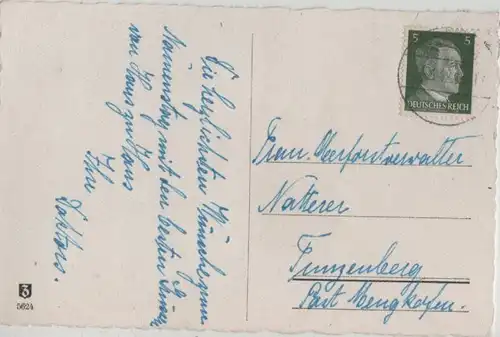 Die herzlichsten Wünsche zum
Namenstag mit den besten Grüßen
von Haus zu Haus
Ihre
Doktors.
5 5
DEUTSCHES REICH
Frau Oberforstverwalter
Natterer
Tunzenberg
Post Mengkofen.
5624